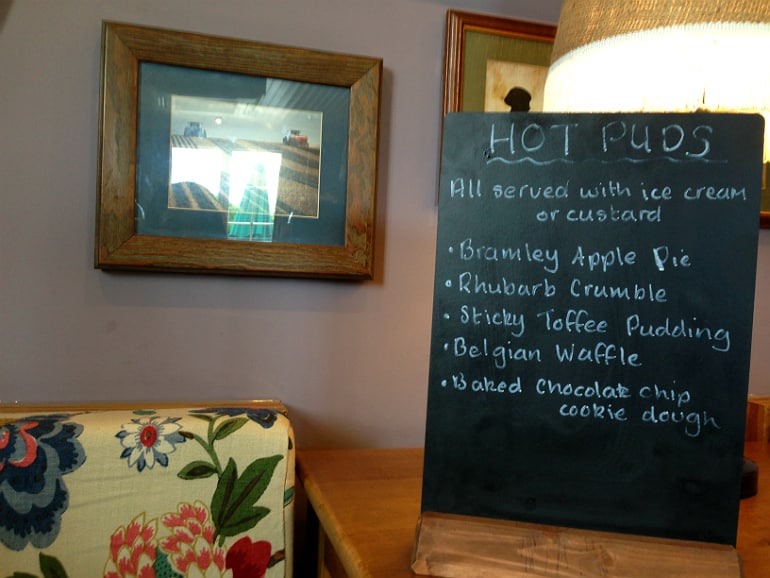 HOT PUDS
All served with ice cream
or custard
• Bramley Apple Pie
• Rhubarb Crumble
• Sticky Toffee Pudding
• Belgian Waffle
• Baked Chocolate chip
cookie dough